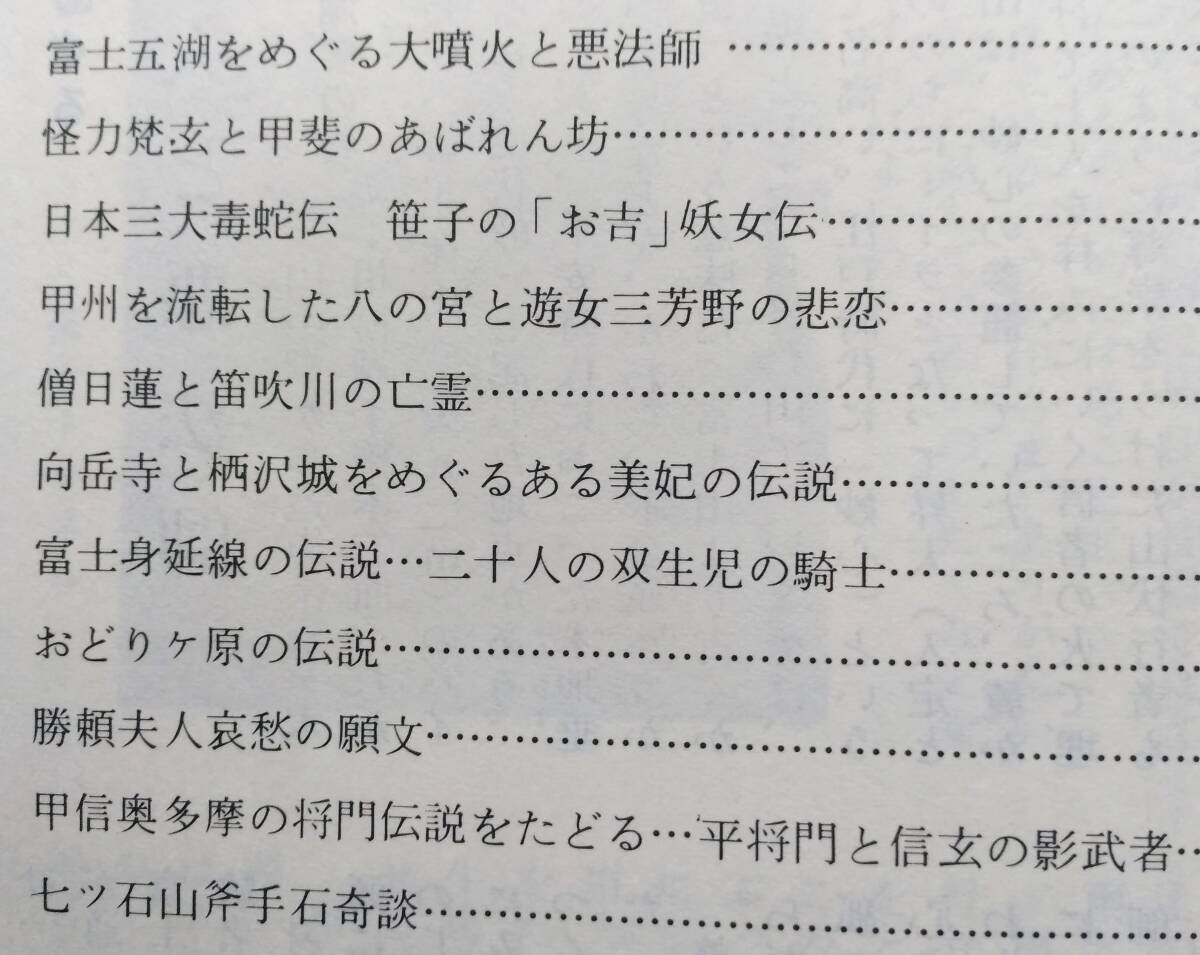 富士五湖をめぐる大噴火と悪法師 ……………………
怪力梵玄と甲斐のあばれん坊……………………
日本三大毒蛇伝　笹子の「お吉」妖女伝……………………
甲州を流転した八の宮と遊女三芳野の悲恋……………………
僧日蓮と笛吹川の亡霊……………………
向岳寺と栖沢城をめぐるある美妃の伝説……………………
富士身延線の伝説…二十人の双生児の騎士……………………
おどりヶ原の伝説……………………
勝頼夫人哀愁の願文……………………
甲信奥多摩の将門伝説をたどる…平将門と信玄の影武者…
七ッ石山斧手石奇談……………………